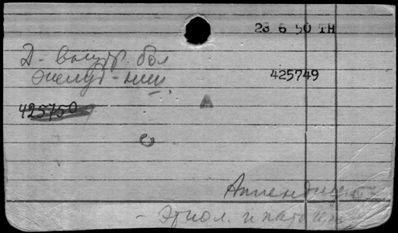 28 6 50 TH
Д- внутр. бол
425749
425750
А
Аппендицит
- Этиол. и патоген